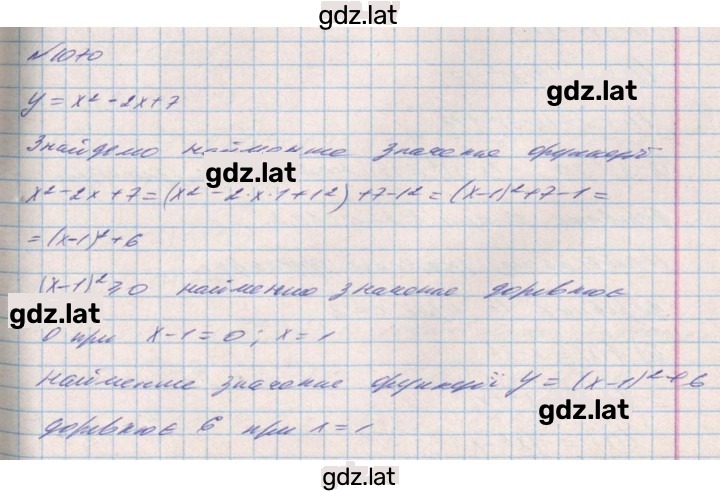 gdz.lat
№1070
y = x² - 2x + 7
gdz.lat
Знайдемо найменше значення функції
gdz.lat
x² - 2x + 7 = (x² - 2·x·1 + 1²) + 7 - 1² = (x-1)² + 7 - 1 =
= (x-1)² + 6
(x-1)² ⩾ 0 найменше значення дорівнює
gdz.lat
0 при x - 1 = 0 ; x = 1
найменше значення функції y = (x-1)² + 6
gdz.lat
дорівнює 6 при x = 1
gdz.lat